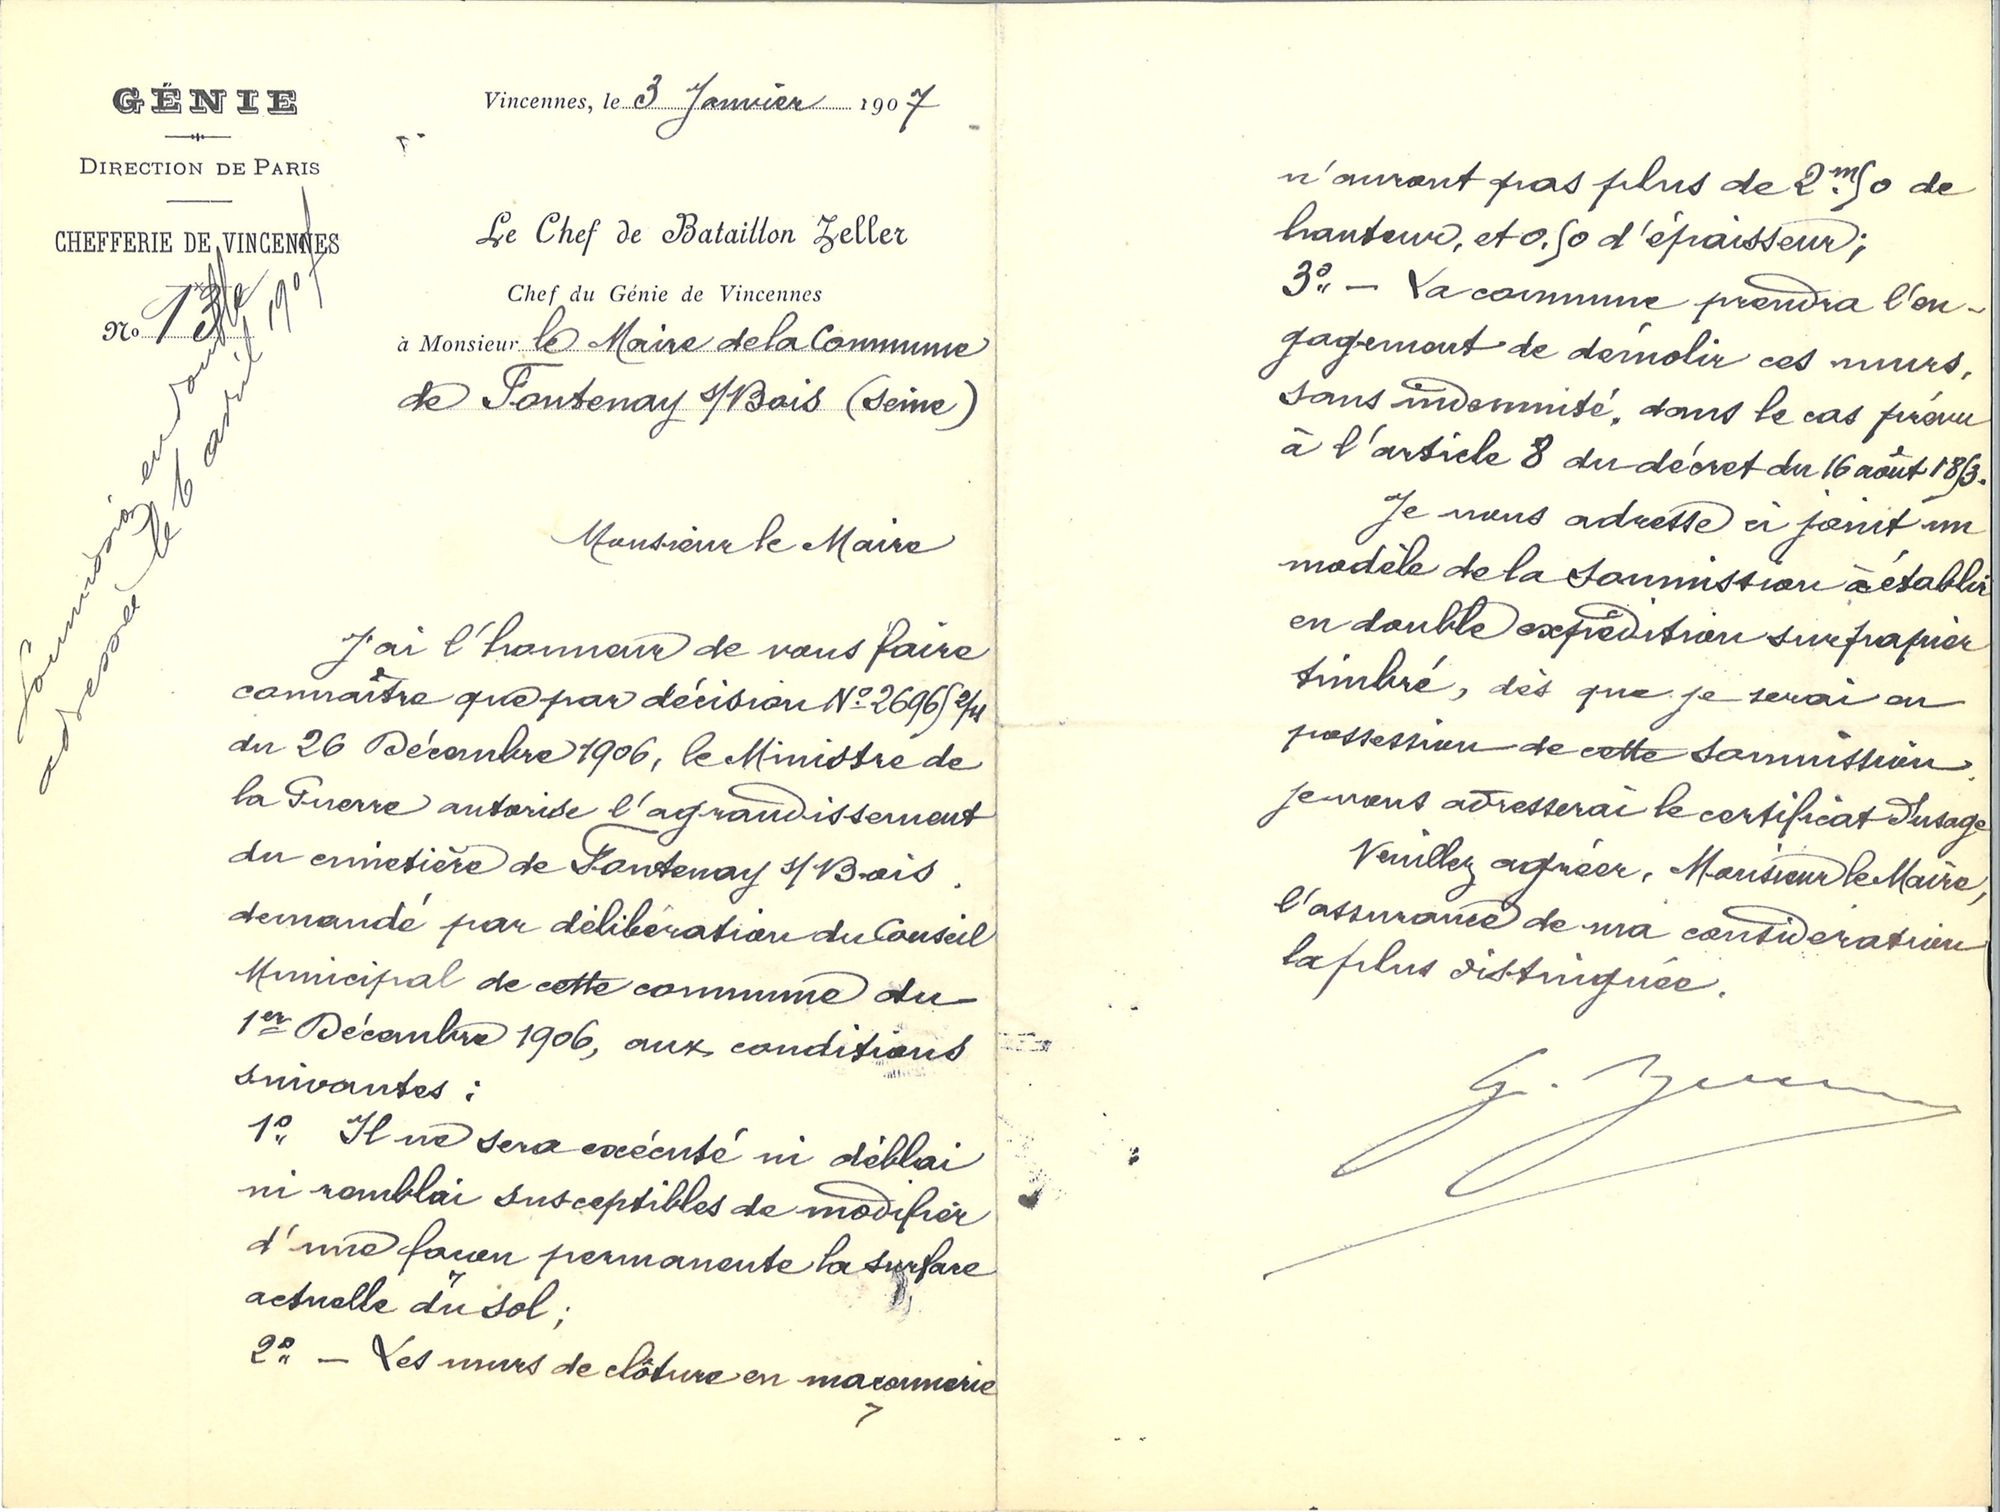 GÉNIE
DIRECTION DE PARIS
CHEFFERIE DE VINCENNES
No 13
Soumission en double
adressée le 6 avril 1907
Vincennes, le 3 Janvier 1907
Le Chef de Bataillon Zeller
Chef du Génie de Vincennes
à Monsieur le Maire de la Commune
de Fontenay s/Bois (Seine)
Monsieur le Maire
J'ai l'honneur de vous faire
connaître que par décision No 2696
du 26 Décembre 1906, le Ministre de
la Guerre autorise l'agrandissement
du cimetière de Fontenay s/Bois,
demandé par délibération du Conseil
Municipal de cette commune du
1er Décembre 1906, aux conditions
suivantes :
1o Il ne sera exécuté ni déblai
ni remblai susceptibles de modifier
d'une façon permanente la surface
actuelle du sol ;
2o — Les murs de clôture en maçonnerie
n'auront pas plus de 2m.50 de
hauteur, et 0.50 d'épaisseur ;
3o — La commune prendra l'en-
gagement de démolir ces murs,
sans indemnité, dans le cas prévu
à l'article 8 du décret du 16 août 1853.
Je vous adresse ci joint un
modèle de la soumission à établir
en double expédition sur papier
timbré, dès que je serai en
possession de cette soumission,
je vous adresserai le certificat d'usage
Veuillez agréer, Monsieur le Maire,
l'assurance de ma considération
la plus distinguée.
G. Zeller